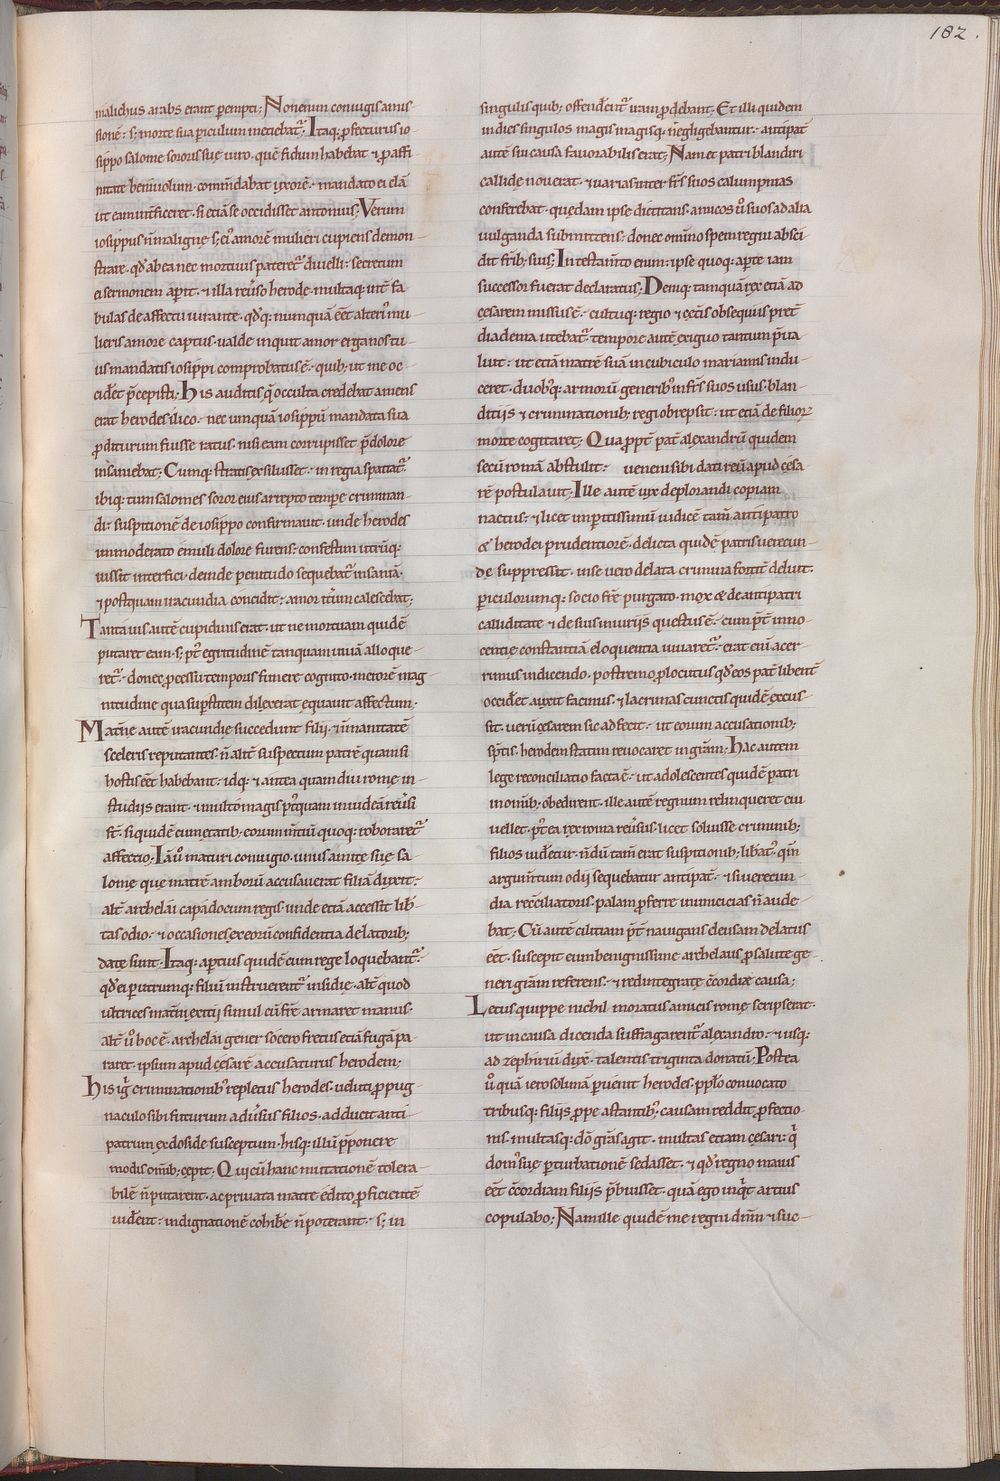 182.
malichus arabs erant pempti; Non enim coniugis amis
sionē: s; morte sua periculum metiebat̃. Itaq; pfecturus io
sippo salome sororis suę uiro. quē fidum habebat ⁊ p affi
nitate beniuolum. cōmdabat uxorē. mandato ei clā
ut eam int̃ficeret. si etiā se occidisset antonius; Verum
iosippus ñ maligne s; ei amorē mulieri cupiens demon
strare. qđ ab ea nec mortuus pateret̃ diuelli: secretum
ei sermonem apit. ⁊ illa reuso herode. multaq; int̃ fa
bulas de affectu iurante. qđq; numquā eēt alteri mu
lieris amore captus. ualde inquit amor erga nos tu
us mandatis iosippi comprobatus ē. quib; ut me oc
cidet pcepisti; his auditis q̃ occulta credebat amens
erat herodes ilico. nec umquā iosippū mandata sua
pditurum fuisse ratus. nisi eam corrupisset. p dolore
insaniebat; Cumq; stratis exsiluisset. in regia spatiat̃.
ibiq; tum salomes soror eius arrepto tempe criminan
di. suspitionē de iosippo confirmauit. unde herodes
immoderato emuli dolore furens: confestim utrūq;
iussit interfici. deinde penitudo sequebat̃ insaniā.
⁊ postquam iracundia concidit: amor itum calescebat;
Tanta uis autē cupidinis erat: ut ne mortuam quidē
putaret eam. s; p egritudinē tanquam uiuā alloque
ret̃. donec pcessu temporis funere cognito. merorē mag
nitudine qua supstitem dilexerat equauit affectum;
Matnę autē iracundię succedunt filii. ⁊ īmanitatē
sceleris reputantes. ñ alit̃ suspectum patrē quam si
hostis eēt habebant. idq; ⁊ antea quam diu romę in
studiis erant. ⁊ multo magis p̃quam in iudeā reusi
st̃. si quidē cum etatib; eorum m̃tium quoq; roboraret̃
affectio; Iā u maturi coniugio. unus amitę suę sa
lomę quę matrē amborū accusauerat filiā duxit:
alt̃ archelai capadocum regis. unde etiā accessit lib
tas odio. ⁊ occasiones ex eorū confidentia delatorib;
datę sunt. Itaq; aptius quidē cum rege loquebant̃.
qđ ei p utrumq; filiū instruerent̃ insidię. alt̃ quod
ultrices matni exitii simul cū fr̄e armaret manus.
alt̃ u hoc ē. archelai gener socero fretus etiā fugā pa
raret. ipsum apud cesarē accusaturus herodem;
His ig̃ criminationib repletus herodes. ueluti ppug
naculo sibi futurum aduersus filios. adducit anti
patrum ex doside susceptum. hisq; illū pponere
modis omīb; cepit; Qui cū hanc mutationē tolera
bilē ñ putarent. ac priuata matre edito pficientē
uident: indignationē cohibe ñ poterant. s; in
singulis quib; offendent̃ iram pdebant. Et illi quidem
in dies singulos magis magisq; negligebantur. antipat̃
autē sui causa fauorabilis erat; Nam et patri blandiri
callide nouerat. ⁊ uarias inter fr̄s suos calumpnias
conferebat. quedam ipse dictitans. amicos u suos ad alia
uulganda submittens. donec omīno spem regni absci
dit fr̄ib; suis; In testam̃to enim. ipse quoq; apte iam
successor fuerat declaratus; Deniq; tamquā rex etiā ad
cesarem missus ē. cultuq; regio ⁊ cęt̃is obsequiis pret̃
diadema utebat̃. tempore autē exiguo tantum pua
luit: ut etiā matrē suā in cubiculo mariamis indu
ceret. duobq; armorū generib in fr̄s suos usus. blan
ditiis ⁊ criminationib; regi obrepsit. ut etiā de filioꝝ
morte cogitaret; Qua ppt̃ pat̃ alexandrū quidem
secū romā abstulit: ueneni sibi dati reū apud cesa
rē postulauit; Ille autē uix deplorandi copiam
nactus. ⁊ licet inpitissimū iudicē tam̃ antipatro
& herodei prudentiorē. delicta quidē patris uerecun
dę suppressit. in se uero delata crimina fortit̃ deluit.
piculorumq; socio fr̄e purgato. mox & de antipatri
calliditate ⁊ de suis iniuriis questus ē: cum p̃t̃ inno
centię constantiā eloquentia iuuaret̃. erat eni acer
rimus in dicendo. postremo plocutus qđ eos pat̃ libent̃
occidet auxit facinus. ⁊ lacrimas cunctis quidē excus
sit. uerū cesarem sic adfecit. ut eorum accusationib;
sp̃tis. herodem statim reuocaret in grām; Hac autem
lege reconciliatio facta ē. ut adolescentes quidē patri
in omīb; obedirent. ille autē regnum relinqueret cui
uellet. p̃t ea rex roma reusus. licet soluisse criminib;
filios uidetur. ñdū tam̃ erat suspitionib; libat. qm̃
argum̃tum odii sequebatur antipat̃. ⁊ si uerecun
dia recc̄iliatoris palam pferre inimicicias ñ aude
bat; Cū autē ciliciam p̃t̃ nauigans cleusam delatus
eēt. suscepit eum benignissime archelaus p salute ge
neri grām referens. ⁊ redintegratę c̄cordiæ causa;
Letus quippe nichil moratus amicis romę scripserat.
ut in causa dicenda suffragarent̃ alexandro. ⁊ usq;
ad zephiriū dux. talentis triginta donatū; Postea
u quā ierosolimā puenit herodes. pplo conuocato
tribusq; filiis prope astantib. causam reddit pfectio
nis. multasq; dō grās agit. multas etiam cesari. q̃
dom suę pturbationē sedasset. ⁊ qđ regno maius
eēt c̄cordiam filiis p̄buisset. quā ego inq̃t artius
copulabo; Nam ille quidē me regni dn̄m ⁊ suc